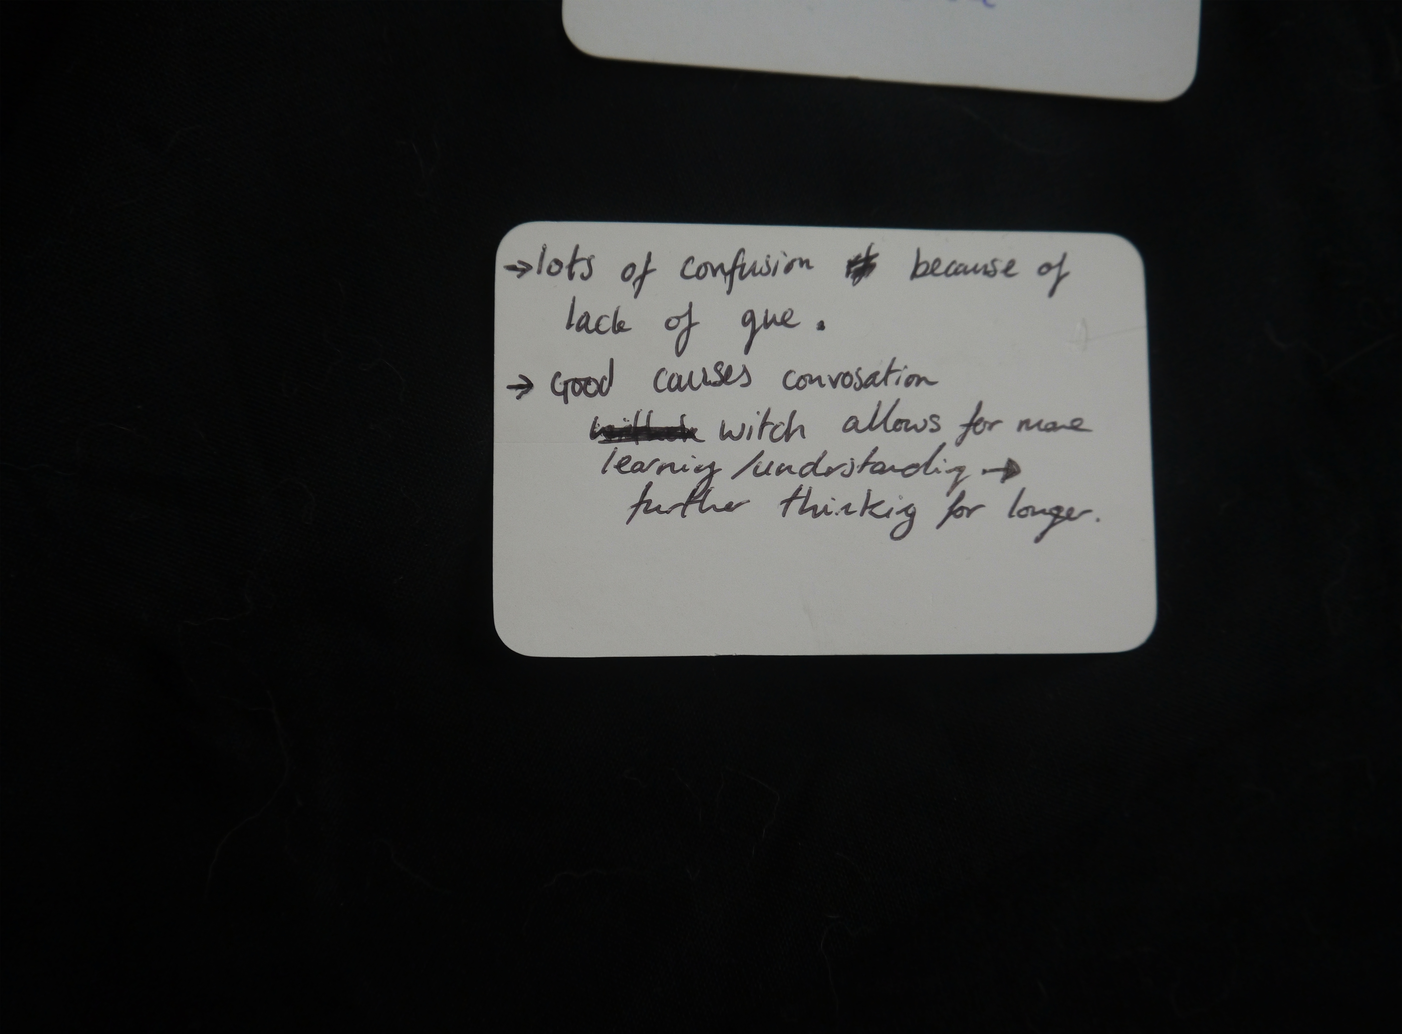 → lots of confusion because of
lack of que.
→ Good causes convosation
witch allows for more
learning / understanding →
further thinking for longer.